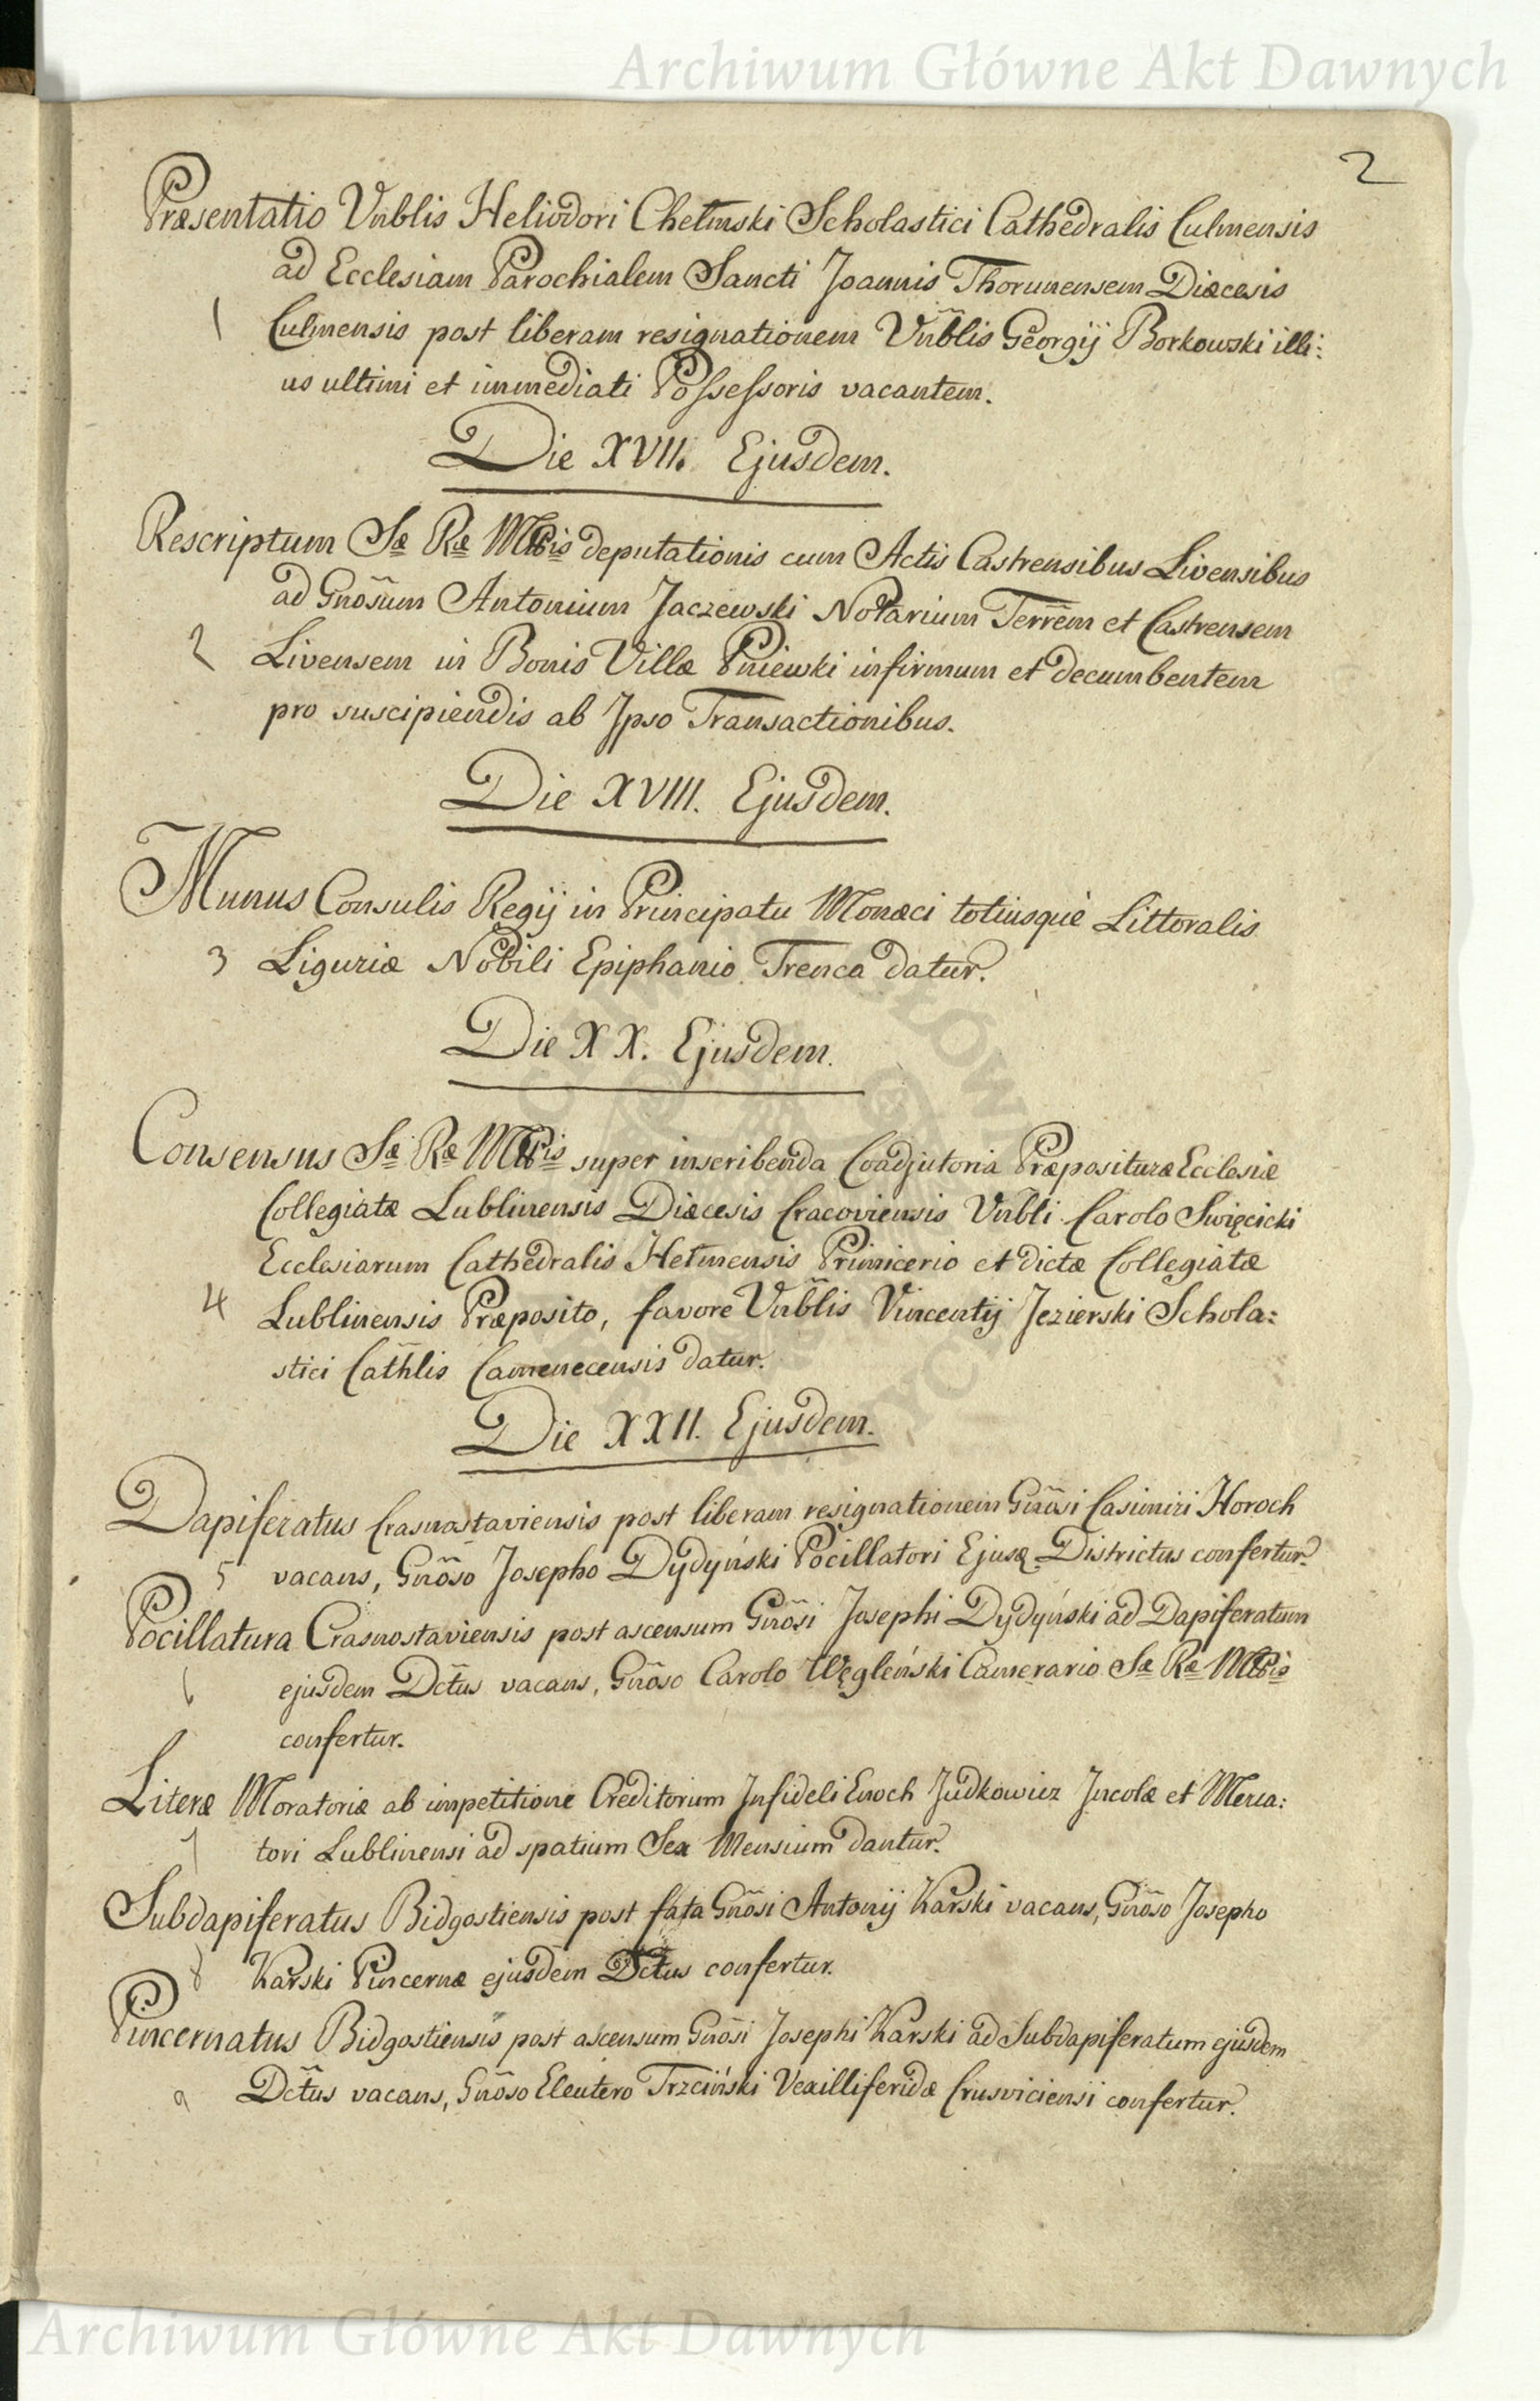 Archiwum Główne Akt Dawnych
2
Præsentatio Vnblis Heliodori Chełmski Scholastici Cathedralis Culmensis
ad Ecclesiam Parochialem Sancti Joannis Thorunensem Diæcesis
1 Culmensis post liberam resignationem Vnblis Georgij Borkowski illi:
us ultimi et immediati Possessoris vacantem.
Die XVII. Ejusdem.
Rescriptum Sæ Ræ Mttis deputationis cum Actis Castrensibus Livensibus
ad Gnosum Antonium Jaczewski Notarium Terrem et Castrensem
2 Livensem in Bonis Villæ Pniewki infirmum et decumbentem
pro suscipiendis ab Ipso Transactionibus.
Die XVIII. Ejusdem.
Munus Consulis Regij in Principatu Monæci totiusque Littoralis
3 Liguriæ Nobili Epiphanio Trenca datur.
Die XX. Ejusdem.
Consensus Sæ Ræ Mttis super inscribenda Coadjutoria Præposituræ Ecclesiæ
Collegiatæ Lublinensis Diæcesis Cracoviensis Vnbli Carolo Swięcicki
Ecclesiarum Cathedralis Hełmensis Primicerio et dictæ Collegiatæ
4 Lublinensis Præposito, favore Vnblis Vincentij Jezierski Schola:
stici Cathlis Camenecensis datur.
Die XXII. Ejusdem.
Dapiferatus Crasnostaviensis post liberam resignationem Gnosi Casimiri Horoch
5 vacans, Gnoso Josepho Dydyński Pocillatori Ejusq Districtus confertur.
Pocillatura Crasnostaviensis post ascensum Gnosi Josephi Dydyński ad Dapiferatum
6 ejusdem Dctus vacans, Gnoso Carolo Węgleński Camerario Sæ Ræ Mttis
confertur.
Literæ Moratoriæ ab impetitione Creditorum Infideli Enoch Judkowicz Incolæ et Merca:
7 tori Lublinensi ad spatium Sex Mensium dantur.
Subdapiferatus Bidgostiensis post fata Gnosi Antonij Karski vacans, Gnoso Josepho
8 Karski Pincernæ ejusdem Dctus confertur.
Pincernatus Bidgostiensis post ascensum Gnosi Josephi Karski ad Subdapiferatum ejusdem
9 Dctus vacans, Gnoso Eleutero Trzciński Vexilliferidæ Crusviciensi confertur.
Archiwum Główne Akt Dawnych